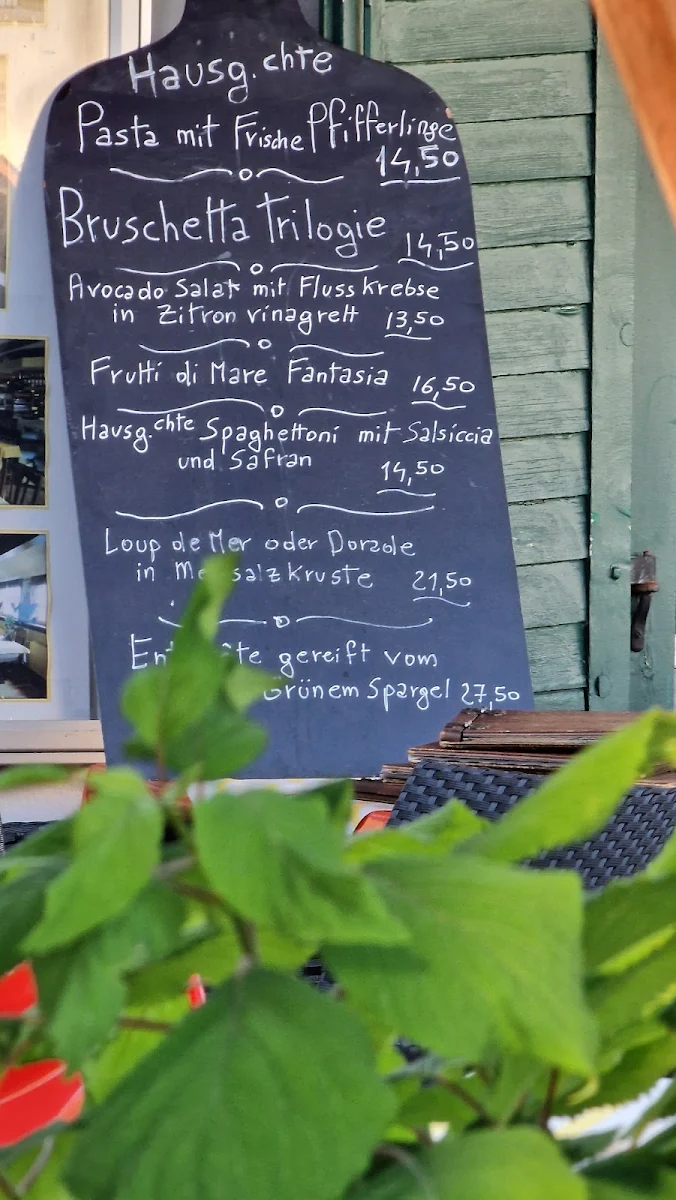 Hausg.chte
Pasta mit Frische Pfifferlinge
14,50
Bruschetta Trilogie 14,50
Avocado Salat mit Fluss Krebse
in Zitron vinagrett 13,50
Frutti di Mare Fantasia 16,50
Hausg.chte Spaghettoni mit Salsiccia
und Safran 14,50
Loup de Mer oder Dorzole
in salzkruste 21,50
gereift vom
Grünem Spargel 27,50